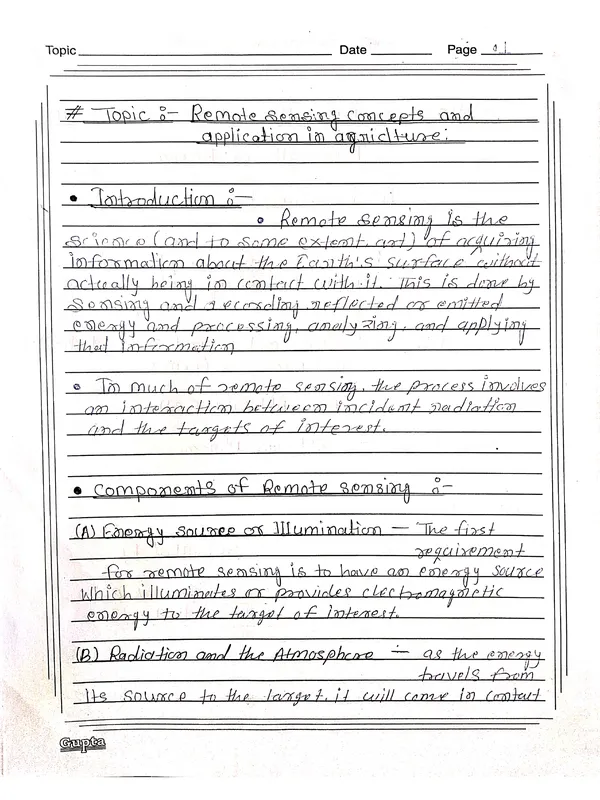 Topic Date Page 01
# Topic :- Remote sensing concepts and
application in agriclture:
• Introduction :-
• Remote sensing is the
science (and to some extent, art) of acquiring
information about the Earth's surface without
actually being in contact with it. This is done by
sensing and recording reflected or emitted
energy and processing, analyzing, and applying
that information
• In much of remote sensing, the process involves
an interaction between incident radiation
and the targets of interest.
• Components of Remote sensing :-
(A) Energy source or Illumination — The first
requirement
for remote sensing is to have an energy source
which illuminates or provides electromagnetic
energy to the target of interest.
(B) Radiation and the Atmosphere :- as the energy
travels from
its source to the target, it will come in contact
Gupta